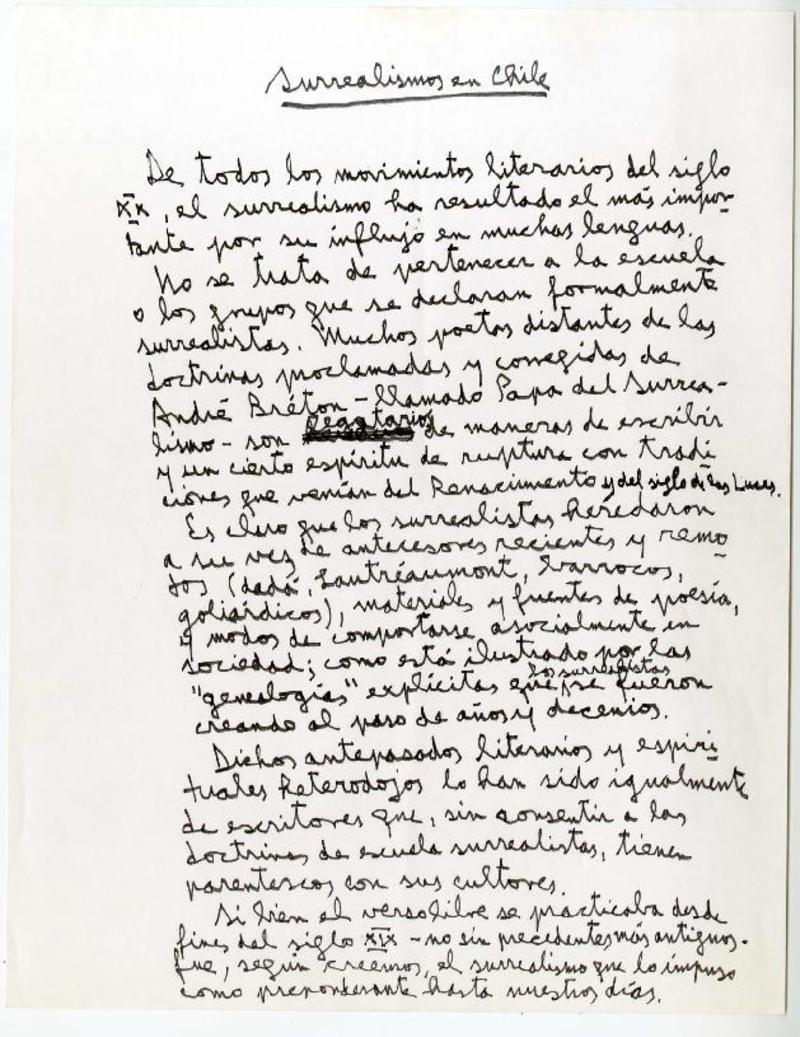 Surrealismos en Chile
De todos los movimientos literarios del siglo
XX, el surrealismo ha resultado el más impor-
tante por su influjo en muchas lenguas.
No se trata de pertenecer a la escuela
o los grupos que se declaran formalmente
surrealistas. Muchos poetas distantes de las
doctrinas proclamadas y corregidas de
André Bréton - llamado Papa del Surrea-
lismo - son legatarios de maneras de escribir
y un cierto espíritu de ruptura con tradi
ciones que venían del Renacimiento y del siglo de las Luces.
Es claro que los surrealistas heredaron
a su vez de antecesores recientes y remo
tos (dadá, Lautréaumont, barrocos,
goliárdicos), materiales y fuentes de poesía,
y modos de comportarse asocialmente en
sociedad; como está ilustrado por las
"genealogías" explícitas que los surrealistas se fueron
creando al paso de años y decenios.
Dichos antepasados literarios y espiri
tuales heterodojos lo han sido igualmente
de escritores que, sin consentir a las
doctrinas de escuela surrealistas, tienen
parentescos con sus cultores.
Si bien el verso libre se practicaba desde
fines del siglo XIX - no sin precedentes más antiguos -
fue, según creemos, el surrealismo que lo impuso
como preponderante hasta nuestros días.